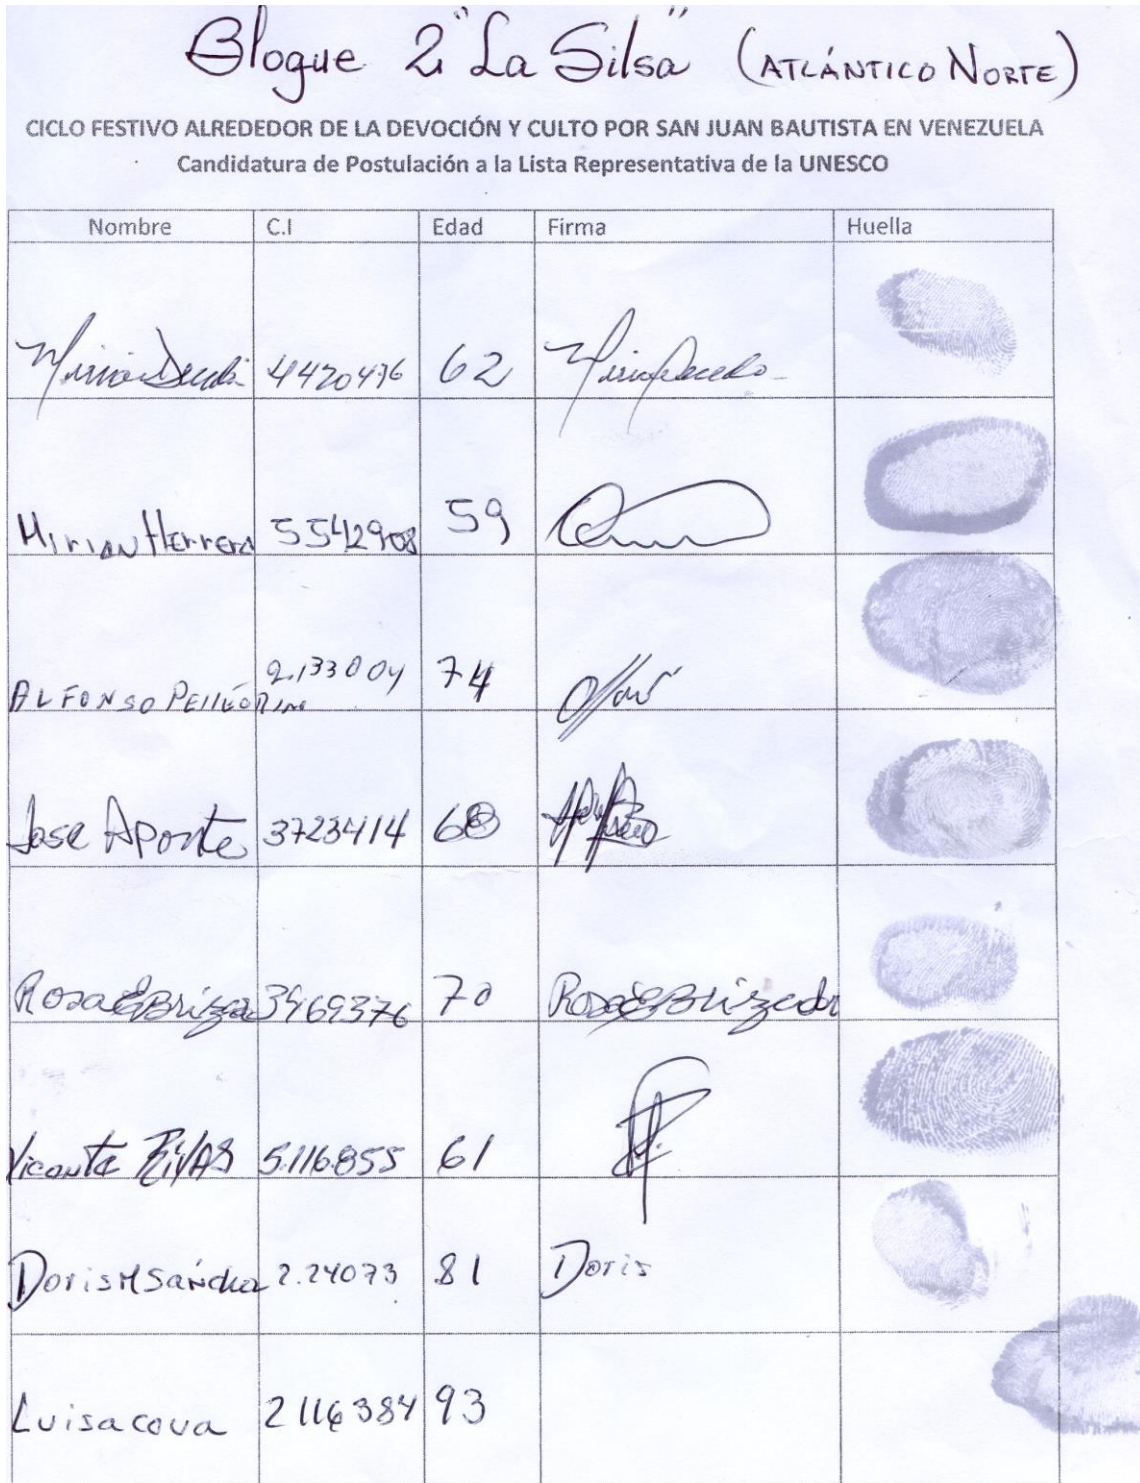 Bloque 2 "La Silsa" (ATLÁNTICO NORTE)
CICLO FESTIVO ALREDEDOR DE LA DEVOCIÓN Y CULTO POR SAN JUAN BAUTISTA EN VENEZUELA
Candidatura de Postulación a la Lista Representativa de la UNESCO
Nombre C.I Edad Firma Huella
4420436 62
Mirian Herrera 5542908 59
ALFONSO 2.133004 74
Jose Aponte 3723414 68
Rosa E Briza 3969376 70 Rosa E Brizeda
Vicente RiVAS 5.116.855 61
Doris M Sanchez 2.24073 81 Doris
Luisa cova 2116384 93